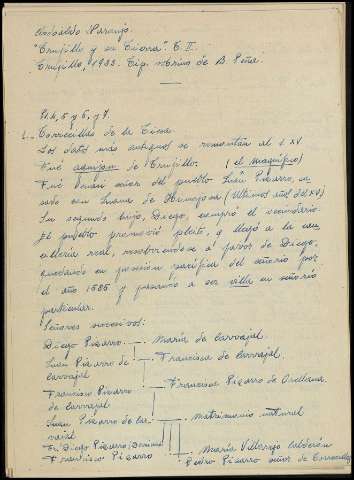 Clodoaldo Naranjo.
"Trujillo y su Tierra". T. II.
Trujillo, 1923. Tip. Sobrino de B. Peña.
4, 5 y 6, y 7.
Torrecillas de la Tiesa.
Los datos más antiguos se remontan al s. XV
Fué de Trujillo. (el magnífico)
Fué señor del pueblo Juan Pizarro, ca
sado con Juana de Hinojosa (Ultimos años del XV)
Su segundo hijo, Diego, compró el
El pueblo promovió pleito, y llegó a la can
cillería real, resolviéndose a favor de Diego,
quedando en posesión pacífica del señorío por
el año 1586 y pasando a ser villa en señorío
particular.
Señores sucesivos:
Diego Pizarro — María de Carvajal.
Juan Pizarro de — Francisca de Carvajal.
Carvajal
Francisco Pizarro — Francisca Pizarro de Orellana.
de Carvajal
Juan Pizarro de Ca- — Matrimonio
vajal
Diego Pizarro
Francisco Pizarro — María Villarejo Calderón
Pedro Pizarro señor de Torrecillas